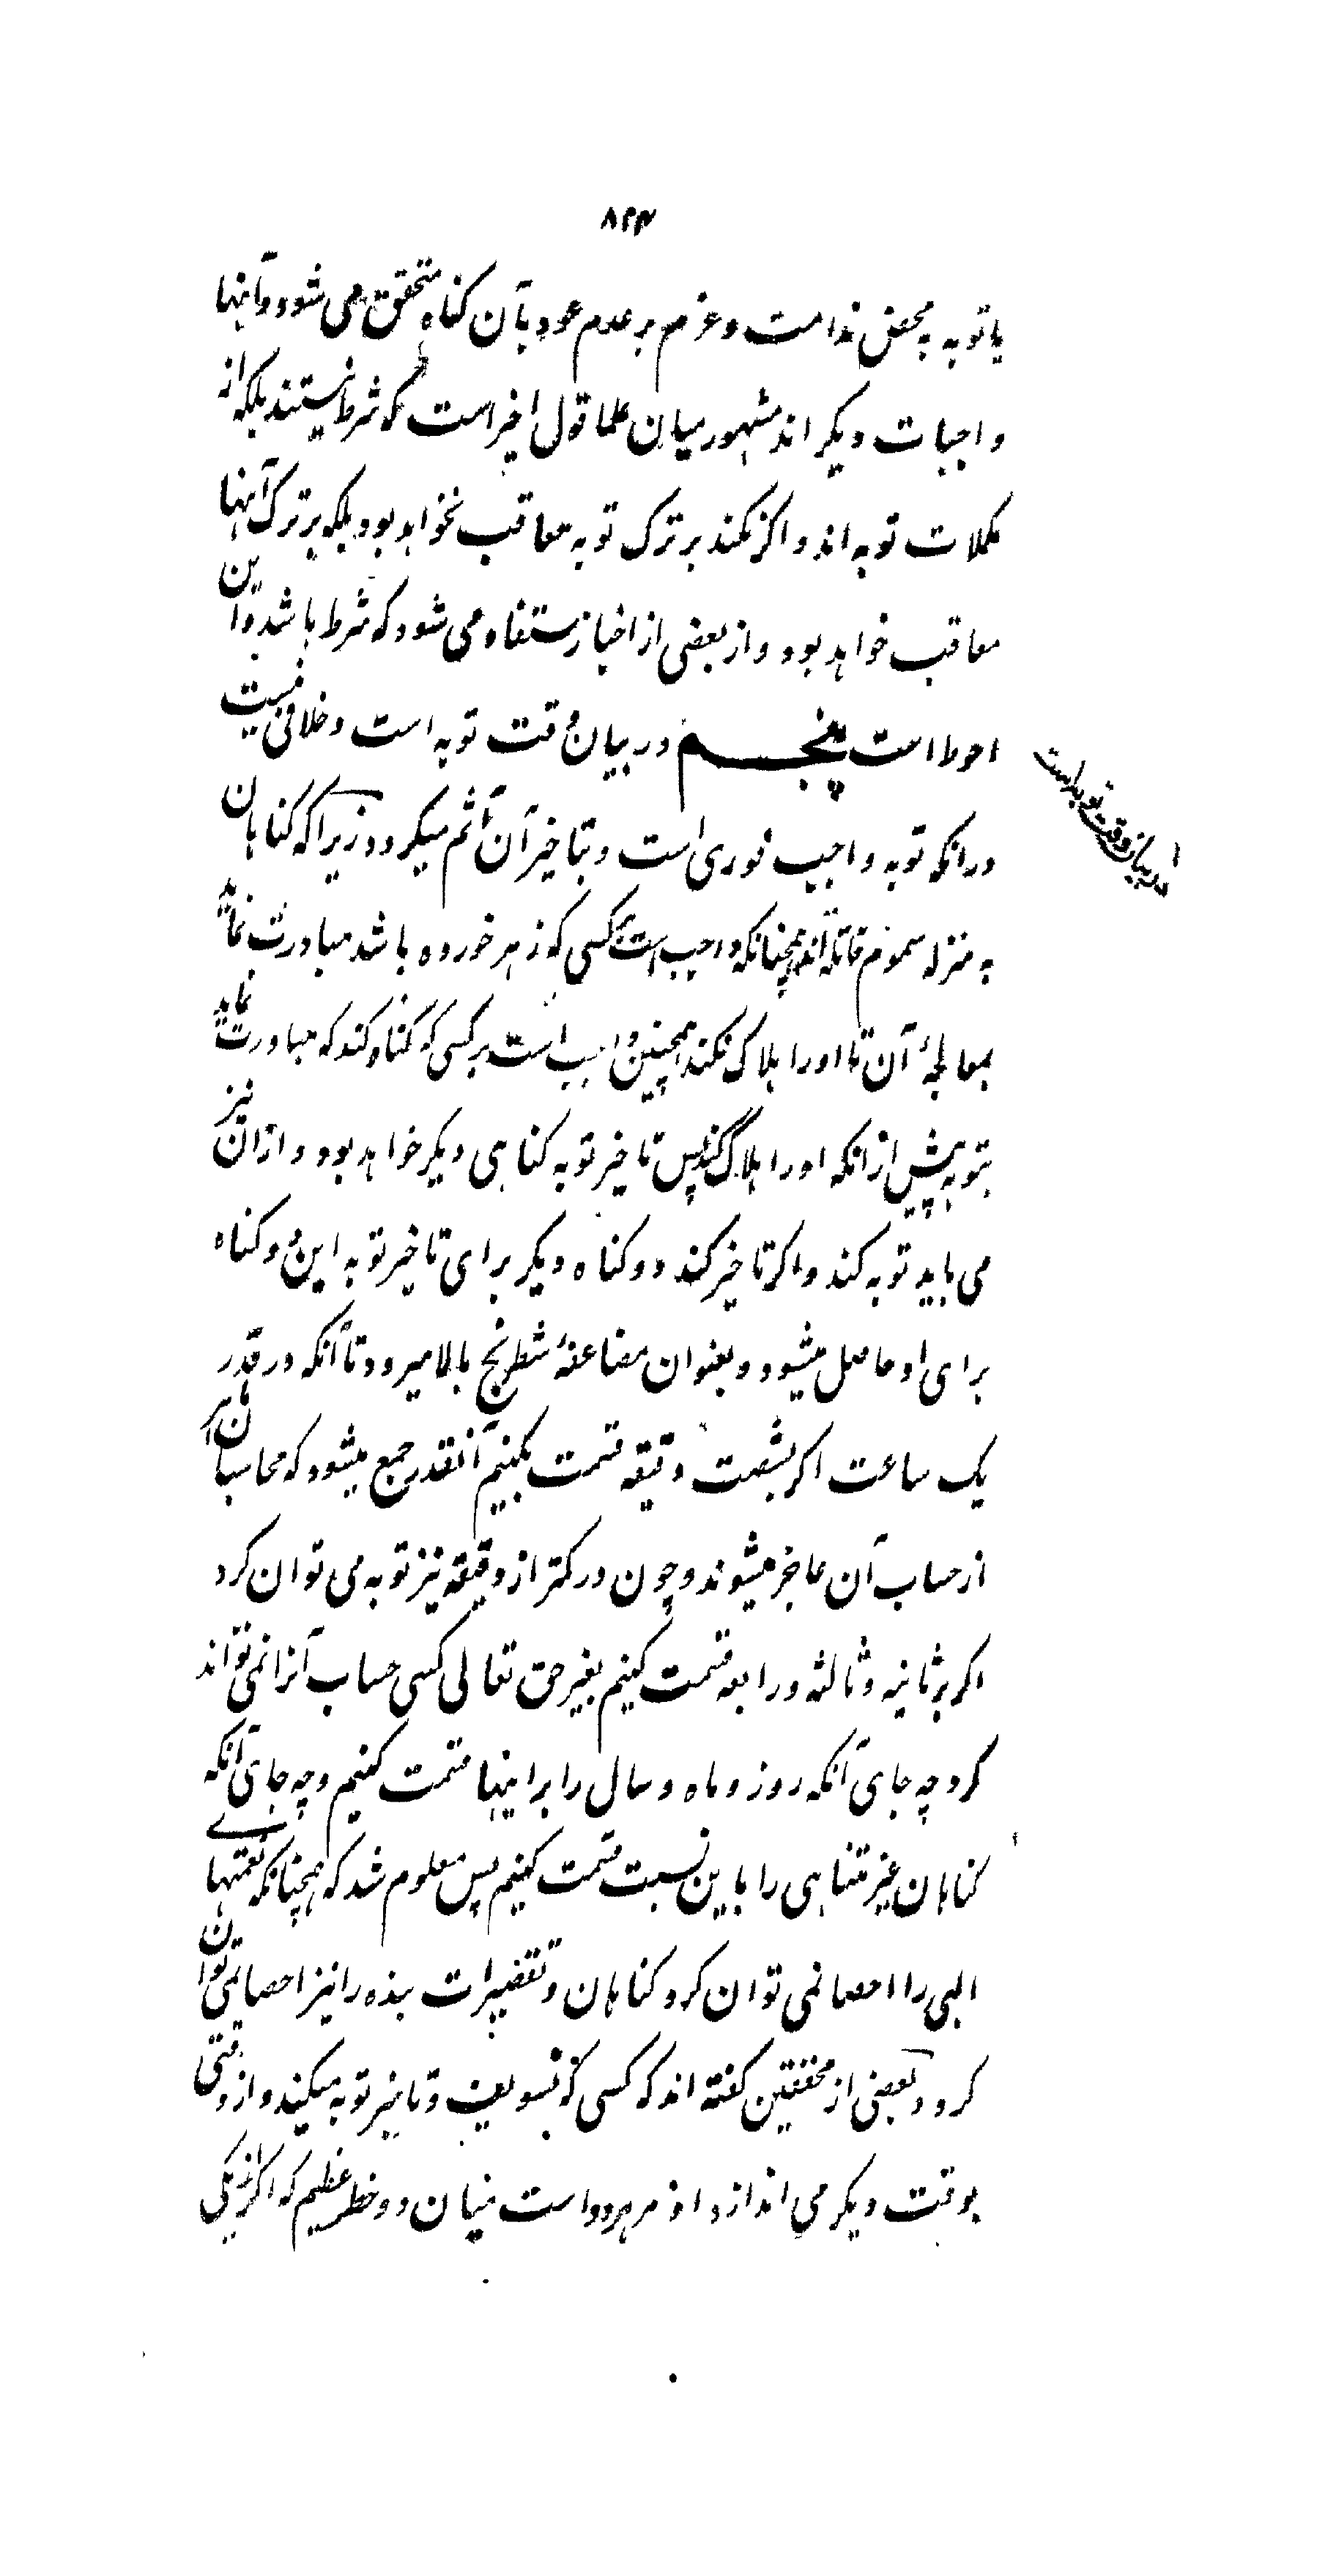 ۸۲۴
یا توبه به محض ندامت و عزم بر عدم عود بآن کناه متحقق می شود و اینها
واجبات دیکر اند مشهور میان علما قول اخیر است که شرط نیستند بلکه از
مکملات توبه اند و اکر نکند بر ترک توبه معاقب نخواهد بود بلکه بر ترک اینها
معاقب خواهد بود و از بعضی از اخبار مستفاد می شود که شرط باشد و این
احوط است پنجم در بیان وقت توبه است و خلافی نیست
در بیان وقت توبه است
در انکه توبه واجب فوری است و بتاخیر آن آثم میکردد زیرا که کناهان
به منزله سموم قاتله اند همچنانکه واجب است کسی که زهر خورده باشد مبادرت نماید
بمعالجهٔ آن تا اورا هلاک نکند همچنین واجب است بر کسی که کناه کند که مبادرت نماید
بتوبه پیش از انکه اورا هلاک کند پس تاخیر توبه کناهی دیکر خواهد بود و ازان نیز
می باید توبه کند و اکر تاخیر کند دو کناه دیکر برای تاخیر توبه این دو کناه
برای او حاصل میشود و بعنوان مضاعفهٔ شطرنج بالا میرود تا آنکه در قدر
یک ساعت اکر بشصت دقیقه قسمت بکنیم آنقدر جمع میشود که محاسبان
از حساب آن عاجز میشوند و چون در کمتر از دقیقه نیز توبه می توان کرد
اکر بر ثانیه و ثالثه و رابعه قسمت کنیم بغیر حق تعالی کسی حساب آنرا نمی تواند
کرد چه جای آنکه روز و ماه و سال را بر اینها قسمت کنیم و چه جای آنکه
کناهان غیر متناهی را باین نسبت قسمت کنیم پس معلوم شد که همچنانکه نعمتهای
الهی را احصا نمی توان کرد کناهان و تقصیرات بنده را نیز احصا نمی توان
کرد و بعضی از محققین کفته اند که کسی که تسویف و تاخیر توبه میکند و از وقتی
بوقت دیکر می اندازد او مردد است میان دو خطر عظیم که اکر از یکی